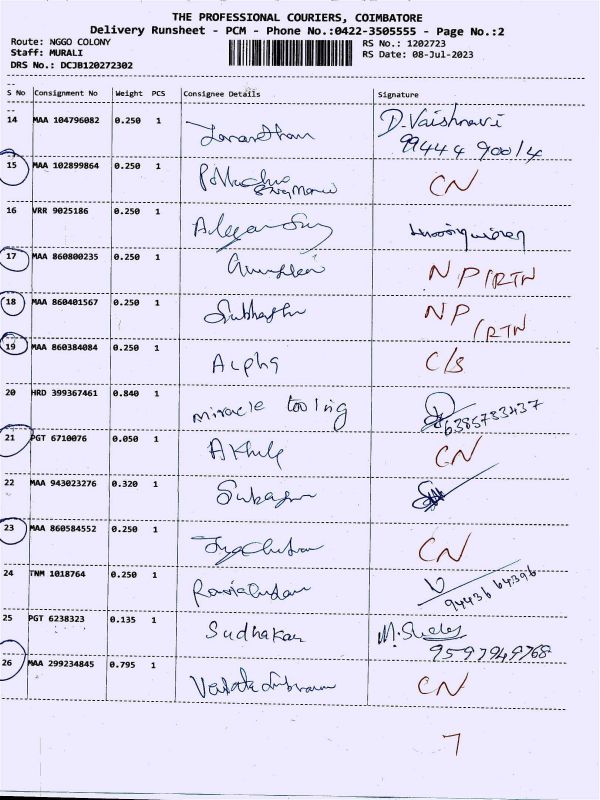 THE PROFESSIONAL COURIERS, COIMBATORE
Delivery Runsheet - PCM - Phone No.:0422-3505555 - Page No.:2
Route: NGGO COLONY
RS No.: 1202723
Staff: MURALI
RS Date: 08-Jul-2023
DRS No.: DCJB120272302
S No Consignment No Weight PCS Consignee Details Signature
14 MAA 104796082 0.250 1 D. Vaishnavi
99444 90014
15 MAA 102899864 0.250 1 CN
16 VRR 9025186 0.250 1
17 MAA 860800235 0.250 1 NP/RTN
18 MAA 860401567 0.250 1 Subhashr NP
/RTN
19 MAA 860384084 0.250 1 Alpha C/S
20 HRD 399367461 0.840 1 miracle tooling 6385733437
21 PGT 6710076 0.050 1 Akhila CN
22 MAA 943023276 0.320 1
23 MAA 860584552 0.250 1 CN
24 TNM 1018764 0.250 1 94436 64396
25 PGT 6238323 0.135 1 Sudhakar
9597949768
26 MAA 299234845 0.795 1 CN
7